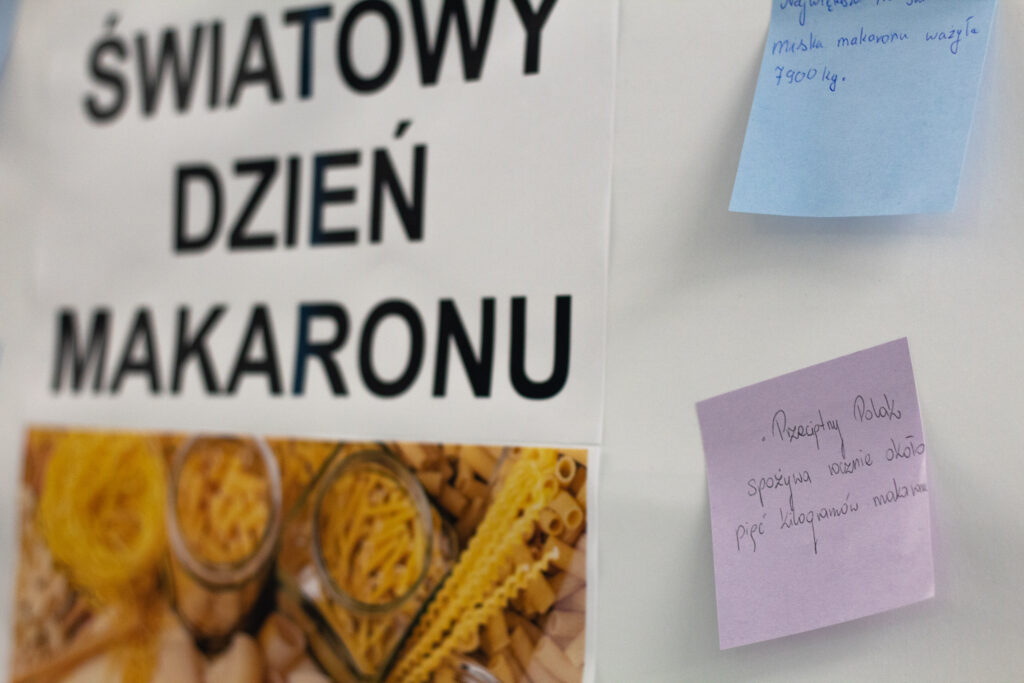 ŚWIATOWY
DZIEŃ
MAKARONU
Największa na
miska makaronu ważyła
7900 kg.
. Przeciętny Polak
spożywa rocznie około
pięć kilogramów makaronu